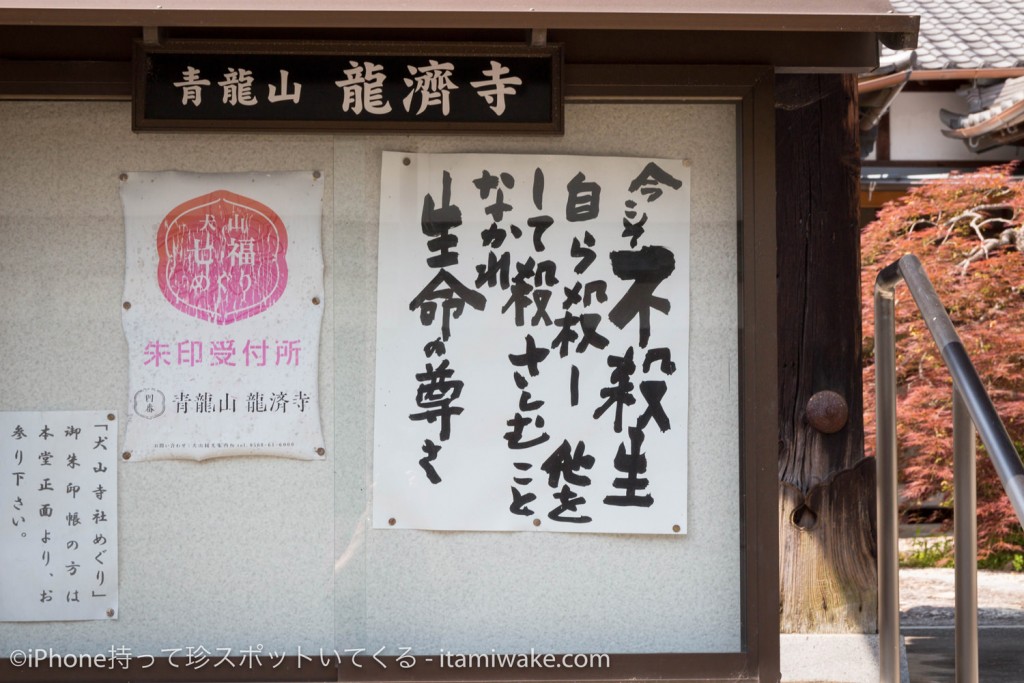 青龍山 龍濟寺
犬山
七福
めぐり
朱印受付所
青龍山 龍済寺
「犬山寺社めぐり」
御朱印帳の方は
本堂正面より、お
参り下さい。
今こそ 不殺生
自ら殺し 他を
して殺さしむこと
なかれ
生命の尊さ
©iPhone持って珍スポットいてくる - itamiwake.com